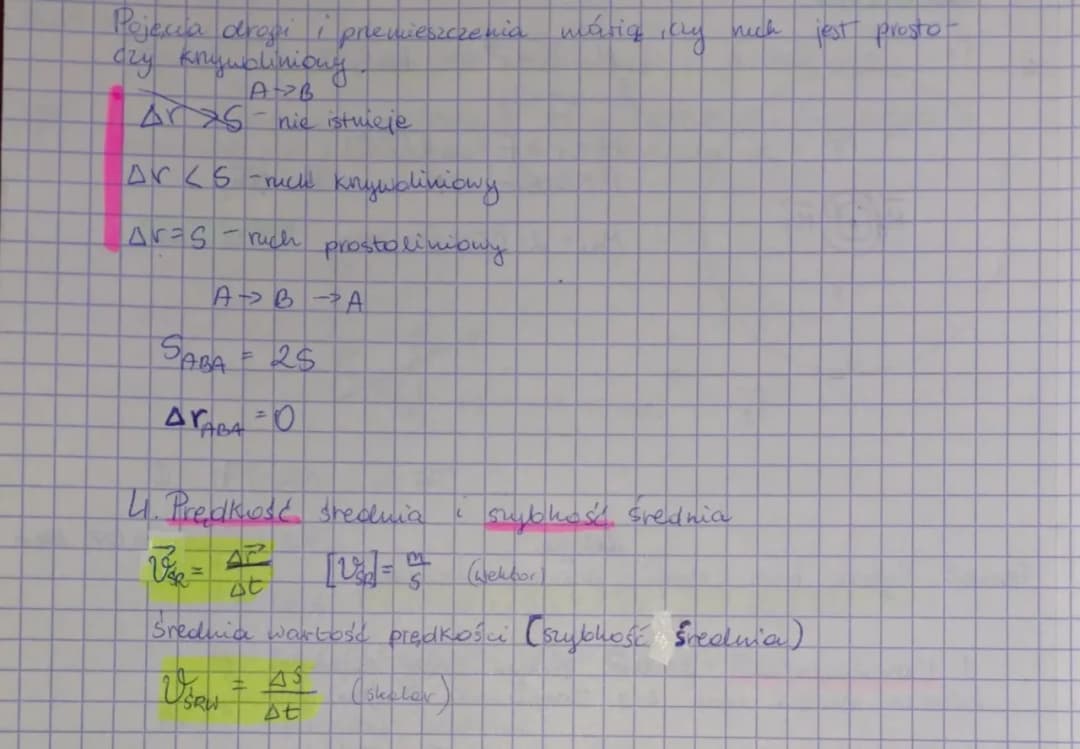 Pojęcia drogi i przemieszczenia mówią, czy ruch jest prosto-
czy krzywoliniowy.
A→B
Δr > S - nie istnieje
Δr < S - ruch krzywoliniowy
Δr = S - ruch prostoliniowy
A → B → A
S_ABA = 2S
Δr_ABA = 0
4. Prędkość średnia i szybkość średnia
v⃗_ŚR = Δr⃗/Δt [v_ŚR] = m/s (wektor)
średnia wartość prędkości (szybkość średnia)
v_ŚRW = ΔS/Δt (skalar)